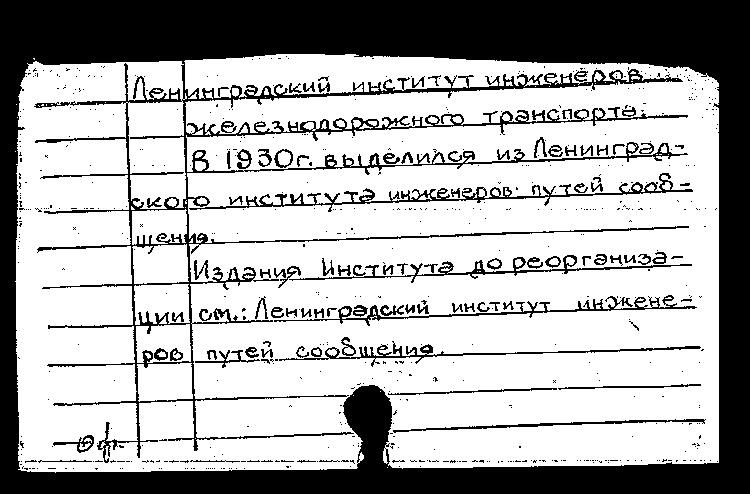 Ленинградский институт инженеров
железнодорожного транспорта.
В 1930г. выделился из Ленинград-
ского института инженеров путей сооб-
щения.
Издания Института до реорганиза-
ции см.: Ленинградский институт инжене-
ров путей сообщения.